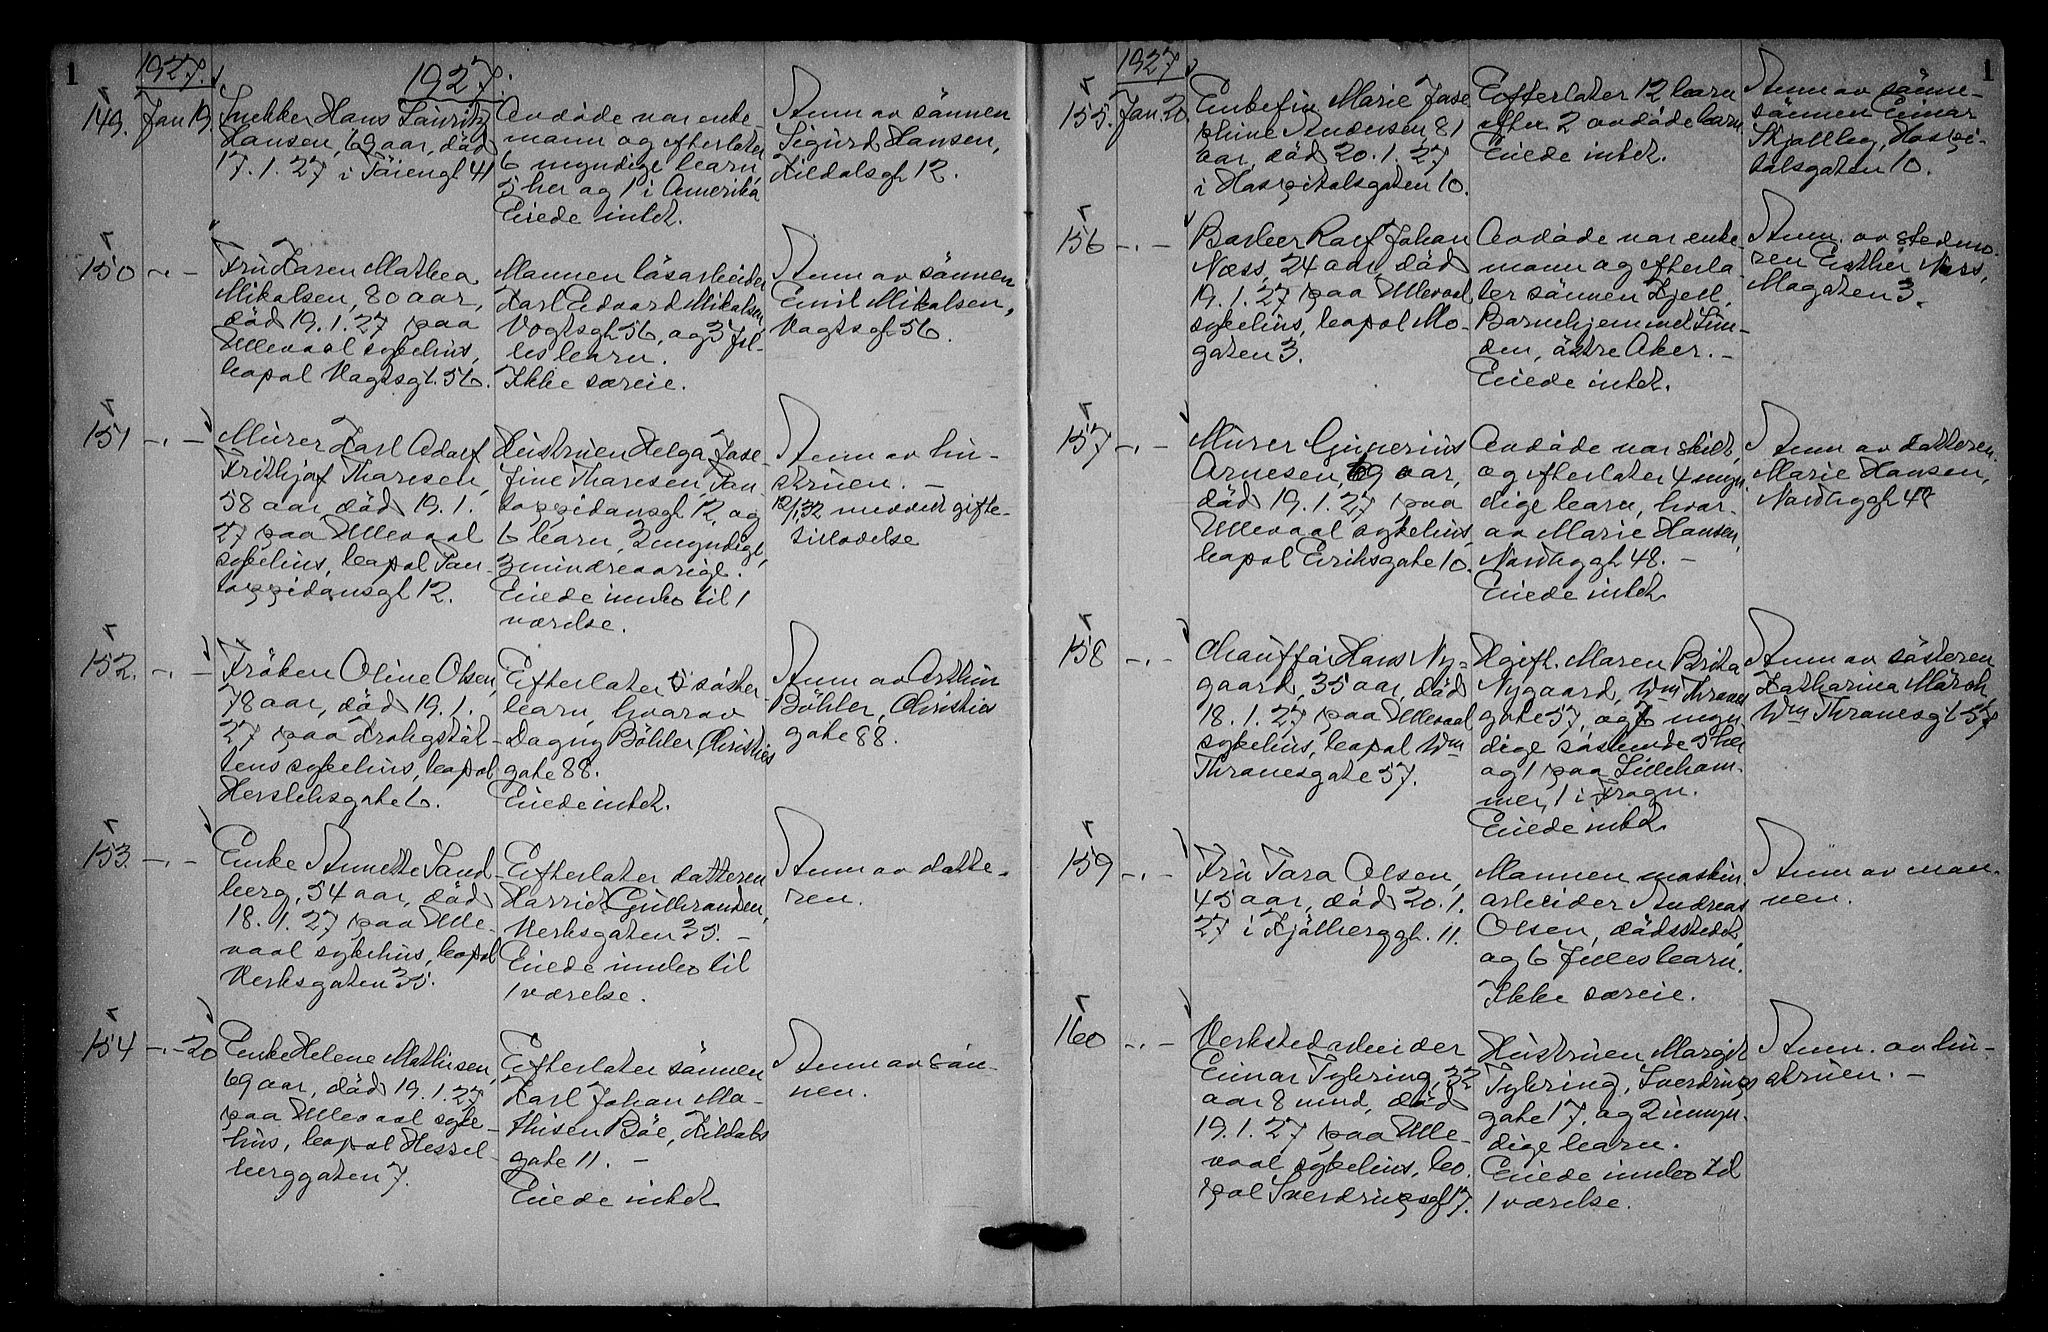 1
1927.
1927.
149.
Jan 19
Snekker Hans Lauritz
Hansen, 69 aar, död
17.1.27 i Töiengt 41
Avdöde var enke-
mann og efterlater
6 myndige barn,
5 her og 1 i Amerika
Eiede intet.
Anm av sönnen
Sigurd Hansen,
Kildalsgt 12.
150
-.-
Fru Karen Mathea
Mikalsen, 80 aar,
död 19.1.27 paa
Ullevaal sykehus,
bopæl Vogtsgt. 56.
Mannen lösarbeider
Karl Edvard Mikalsen
Vogtsgt 56, og 3 fel-
les barn.
Ikke særeie.
Anm av sönnen
Emil Mikalsen,
Vogtsgt 56.
151
-.-
Murer Karl Adolf
Frithjof Thoresen,
58 aar död 19.1.
27 paa Ullevaal
sykehus, bopæl Pon-
toppidansgt 12.
Hustruen Helga Jose-
fine Thoresen, Pon-
toppidansgt 12, og
6 barn, 3 myndige,
3 mindreaarige.
Eiede innbo til 1
værelse.
Anm av hu-
struen. -
12/1 32 meddelt gifte-
tillatelse
152.
-.-
Fröken Oline Olsen,
78 aar, död 19.1.
27 paa Krohgstöt-
tens sykehus, bopæl
Herslebsgate 6.
Efterlater 5 söster
barn, hvorav
Dagny Böhler Christies
gate 88.
Eiede intet.
Anm av Arthur
Böhler, Christies
gate 88.
153
-.-
Enke Annette Sand-
berg, 54 aar, död
18.1.27 paa Ulle-
vaal sykehus, bopæl
Verksgaten 35.
Efterlater datteren
Harriet Gulbrandsen,
Verksgaten 35. -
Eiede innbo til
1 værelse.
Anm av datte-
ren.
154
-.-20
Enke Helene Mathisen,
69 aar, död 19.1.27
paa Ullevaal syke-
hus, bopæl Hessel-
berggaten 7.
Efterlater sönnen
Karl Johan Ma-
thisen Böe, Kildals
gate 11. -
Eiede intet
Anm av sön-
nen.
1927
1
155.
Jan. 20
Enkefru Marie Jose
phine Andersen 81
aar, död 20.1.27
i Hospitalsgaten 10.
Efterlater 12 barn
efter 2 avdöde barn.
Eiede intet.
Anm av sönne-
sönnen Einar
Skjolleg, Hospi-
talsgaten 10.
156
-.-
Barber Rolf Johan
Næss, 24 aar, död
19.1.27 paa Ullevaal
sykehus, bopæl Mo-
gaten 3.
Avdöde var enke-
mann og efterla-
ter sönnen Kjell.
Barnehjemmet Lin-
den, östre Aker. -
Eiede intet.
Anm. av stedmo-
ren Esther Næss,
Mogaten 3.
157
-.-
Murer Gunerius
Arnesen, 69 aar,
död 19.1.27 paa
Ullevaal sykehus,
bopæl Eriksgate 10.
Avdöde var skilt,
og efterlater 4 myn-
dige barn, hvor-
av Marie Hansen,
Nordbyggt 48. -
Eiede intet
Anm av datteren
Marie Hansen,
Nordbyggt 48
158
-.-
Chaufför Hans Ny-
gaard, 35 aar, död
18.1.27 paa Ullevaal
sykehus, bopæl Wm
Thranesgate 57.
Hgift. Maren Brita
Nygaard, Wm Thranes
gate 57, og 7 myn-
dige söskende 5 her
og 1 paa Lilleham-
mer, 1 i Frogn.
Eiede intet.
Anm av sösteren
Katharina March,
Wm Thranesgt 57
159
-.-
Fru Tora Olsen,
45 aar, död 20.1.
27 i Kjölberggt. 11.
Mannen maskin-
arbeider Andreas
Olsen, dödsstedet,
og 6 felles barn.
Ikke særeie.
Anm av man-
nen.
160
-.-
Verkstedarbeider
Einar Tybring, 32
aar 8 mnd, död
19.1.27 paa Ulle-
vaal sykehus, bo-
pæl Sverdrupsgt 17.
Hustruen Margit
Tybring, Sverdrups
gate 17. og 2 umyn-
dige barn.
Eiede innbo til
1 værelse.
Anm. av hu-
struen. -